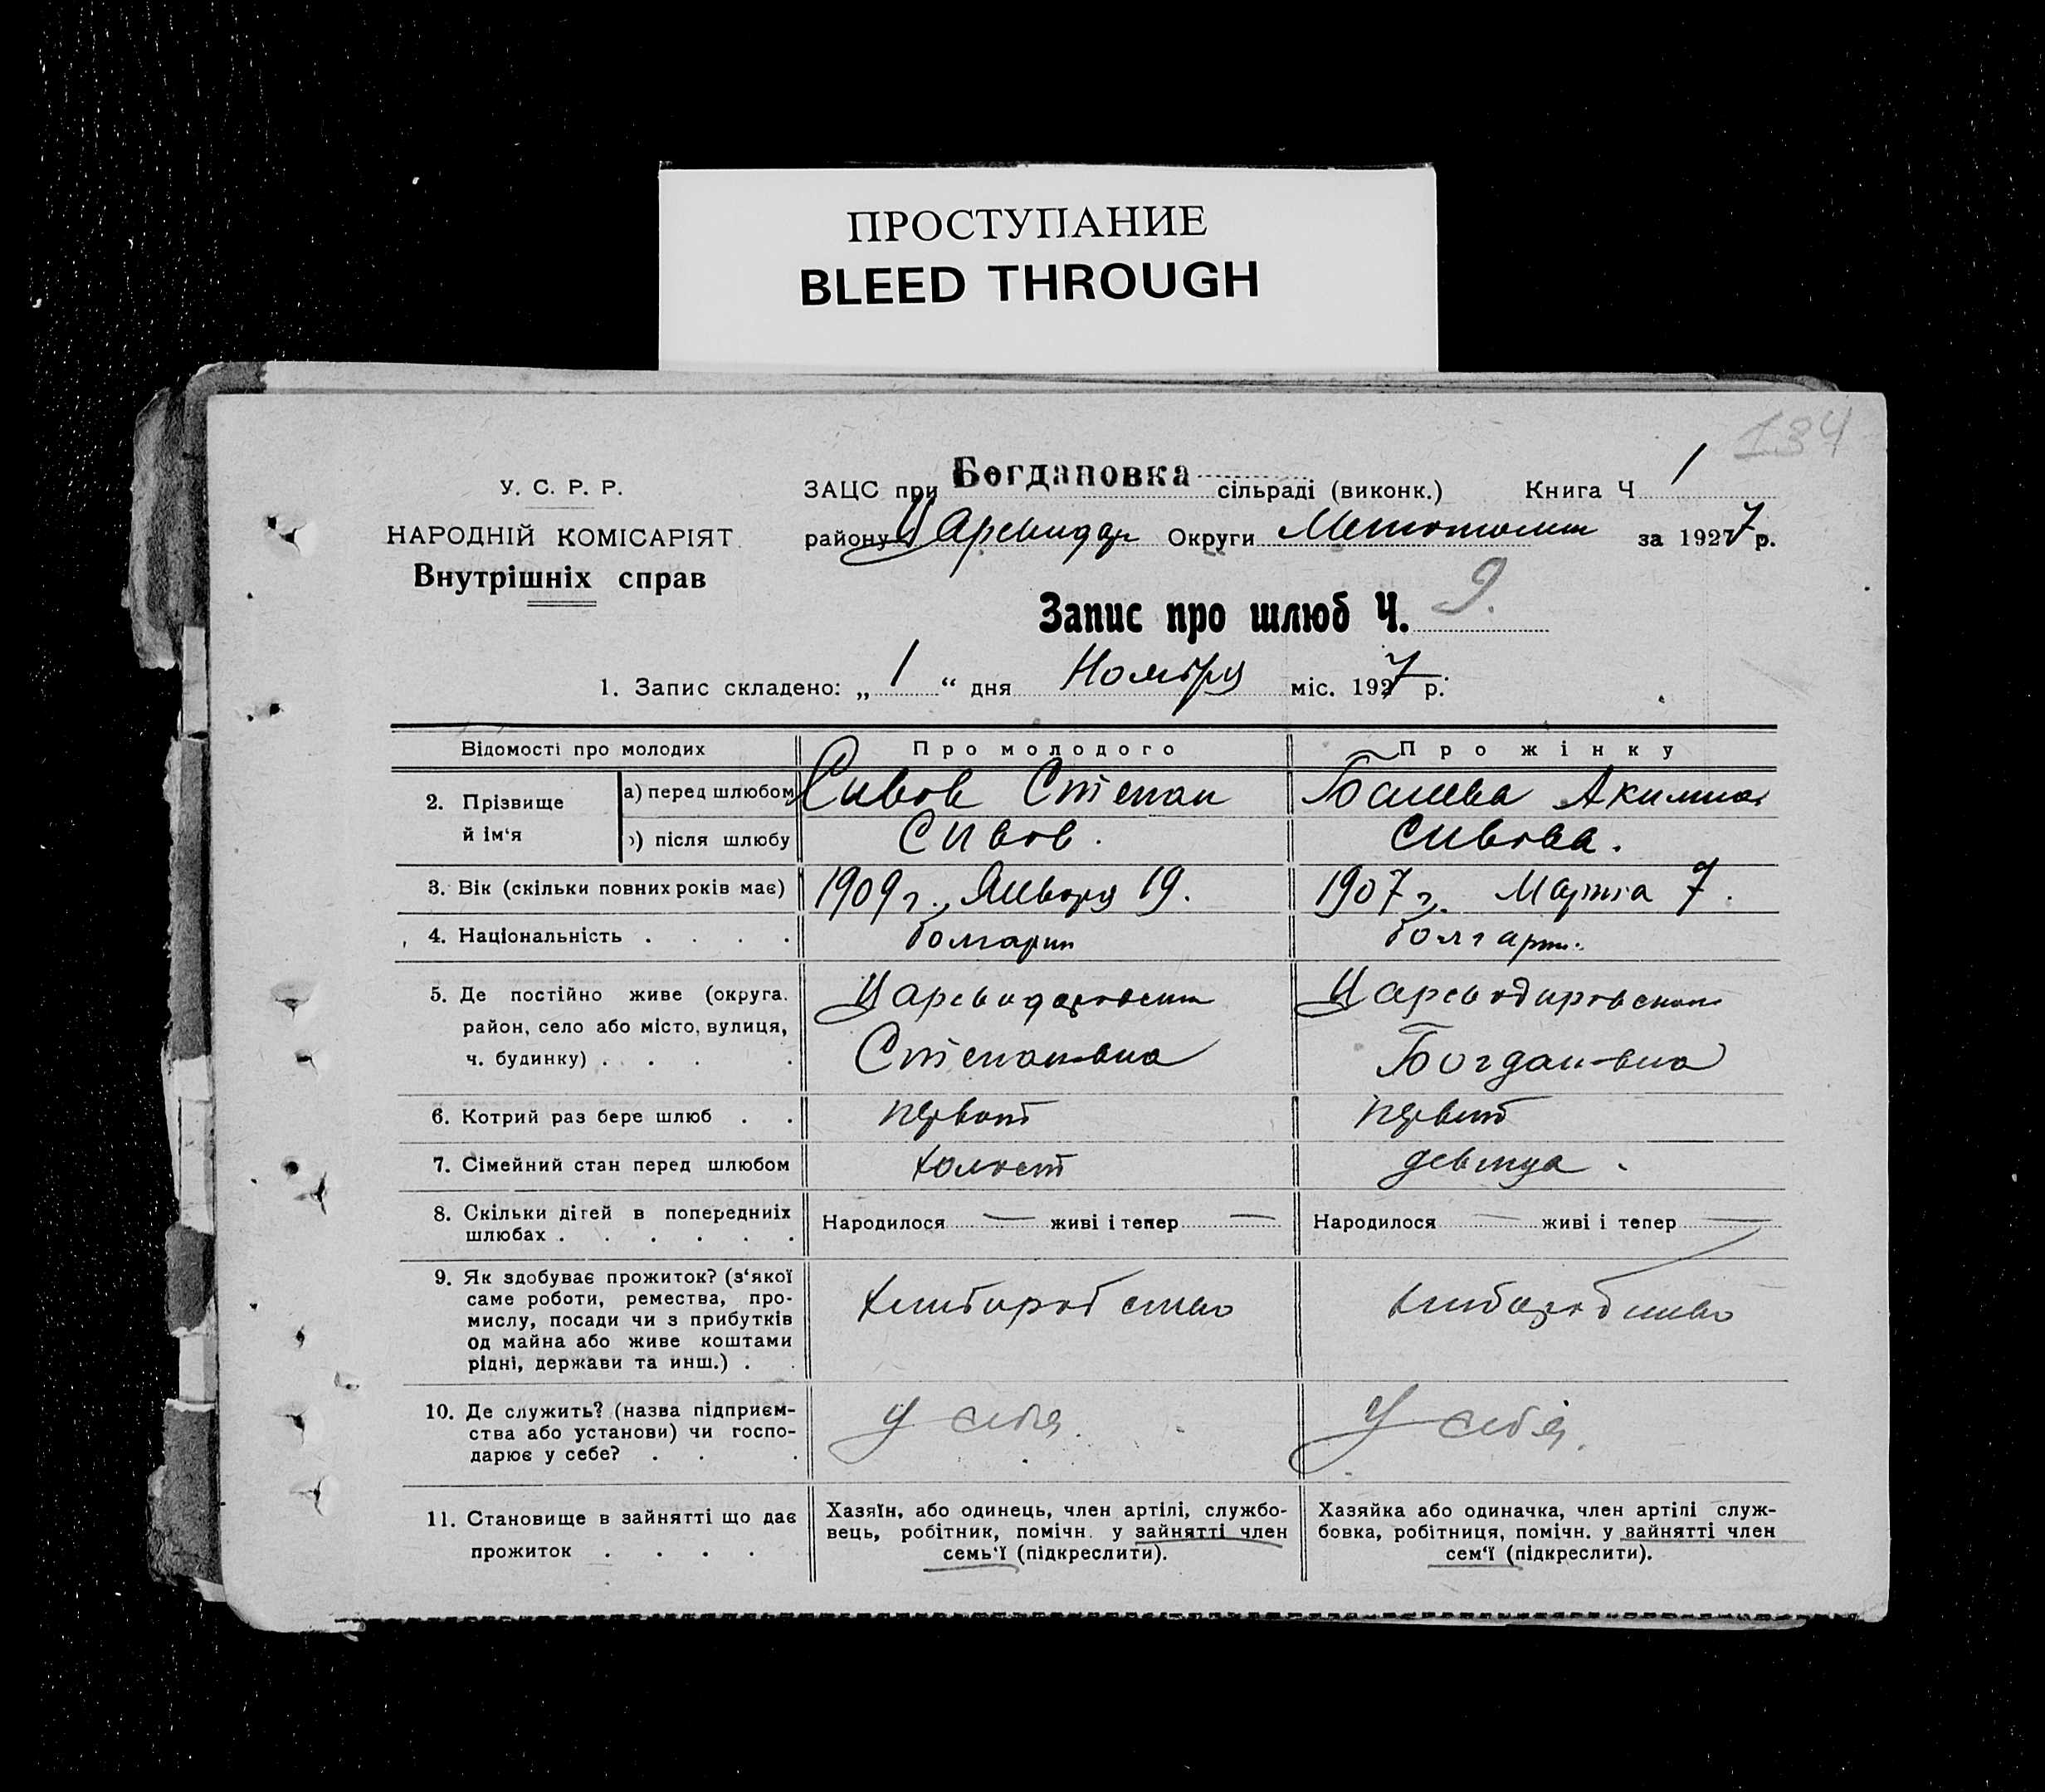 ПРОСТУПАНИЕ
BLEED THROUGH
134
У. С. Р. Р.
НАРОДНІЙ КОМІСАРІЯТ
Внутрішніх справ
ЗАЦС при Богдановка сільраді (виконк.) Книга Ч 1
району Царевидар Округи за 1927 р.
Запис про шлюб Ч. 9.
1. Запис складено: „ 1 “ дня Ноября міс. 1927 р.
Відомості про молодих Про молодого Про жінку
2. Прізвище й ім‘я а) перед шлюбом Сивов Степан Башева Акимина
) після шлюбу Сивов. Сивова.
3. Вік (скільки повних років має) 1909 г., Января 19. 1907 г. Марта 7.
4. Національність . . . . болгарин болгарк.
5. Де постійно живе (округа. район, село або місто, вулиця, ч. будинку) . . . . Царевидаровский Степановка Цареводаровский Богдановка
6. Котрий раз бере шлюб . . первый первый
7. Сімейний стан перед шлюбом холост девица .
8. Скільки дітей в попередниіх шлюбах . . . . . . Народилося — живі і тепер — Народилося — живі і тепер —
9. Як здобуває прожиток? (з‘якої
саме роботи, ремества, про-
мислу, посади чи з прибутків
од майна або живе коштами
рідні, держави та инш.) . .
хлиборобство хлиборобство
10. Де служить? (назва підприєм-
ства або установи) чи госпо-
дарює у себе? . . .
у себя. У себя.
11. Становище в зайнятті що дає
прожиток . . . . .
Хазяїн, або одинець, член артілі, службо-
вець, робітник, помічн. у зайнятті член
семь‘ї (підкреслити).
Хазяйка або одиначка, член артілі служ-
бовка, робітниця, помічн. у зайнятті член
сем‘ї (підкреслити).